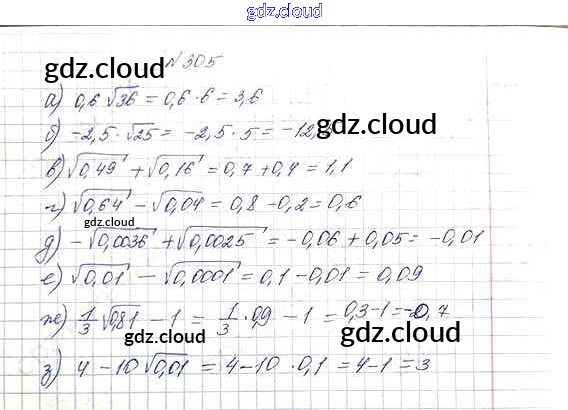 gdz.cloud
№305
gdz.cloud
а) 0,6 √36 = 0,6 · 6 = 3,6
б) -2,5 · √25 = -2,5 · 5 = -12,
gdz.cloud
в) √0,49 + √0,16 = 0,7 + 0,4 = 1,1
г) √0,64 - √0,04 = 0,8 - 0,2 = 0,6
gdz.cloud
д) -√0,0036 + √0,0025 = -0,06 + 0,05 = -0,01
е) √0,01 - √0,0001 = 0,1 - 0,01 = 0,09
ж) 1/3 √0,81 - 1 = 1/3 · 0,9 - 1 = 0,3 - 1 = -0,7
gdz.cloud gdz.cloud
з) 4 - 10 √0,01 = 4 - 10 · 0,1 = 4 - 1 = 3